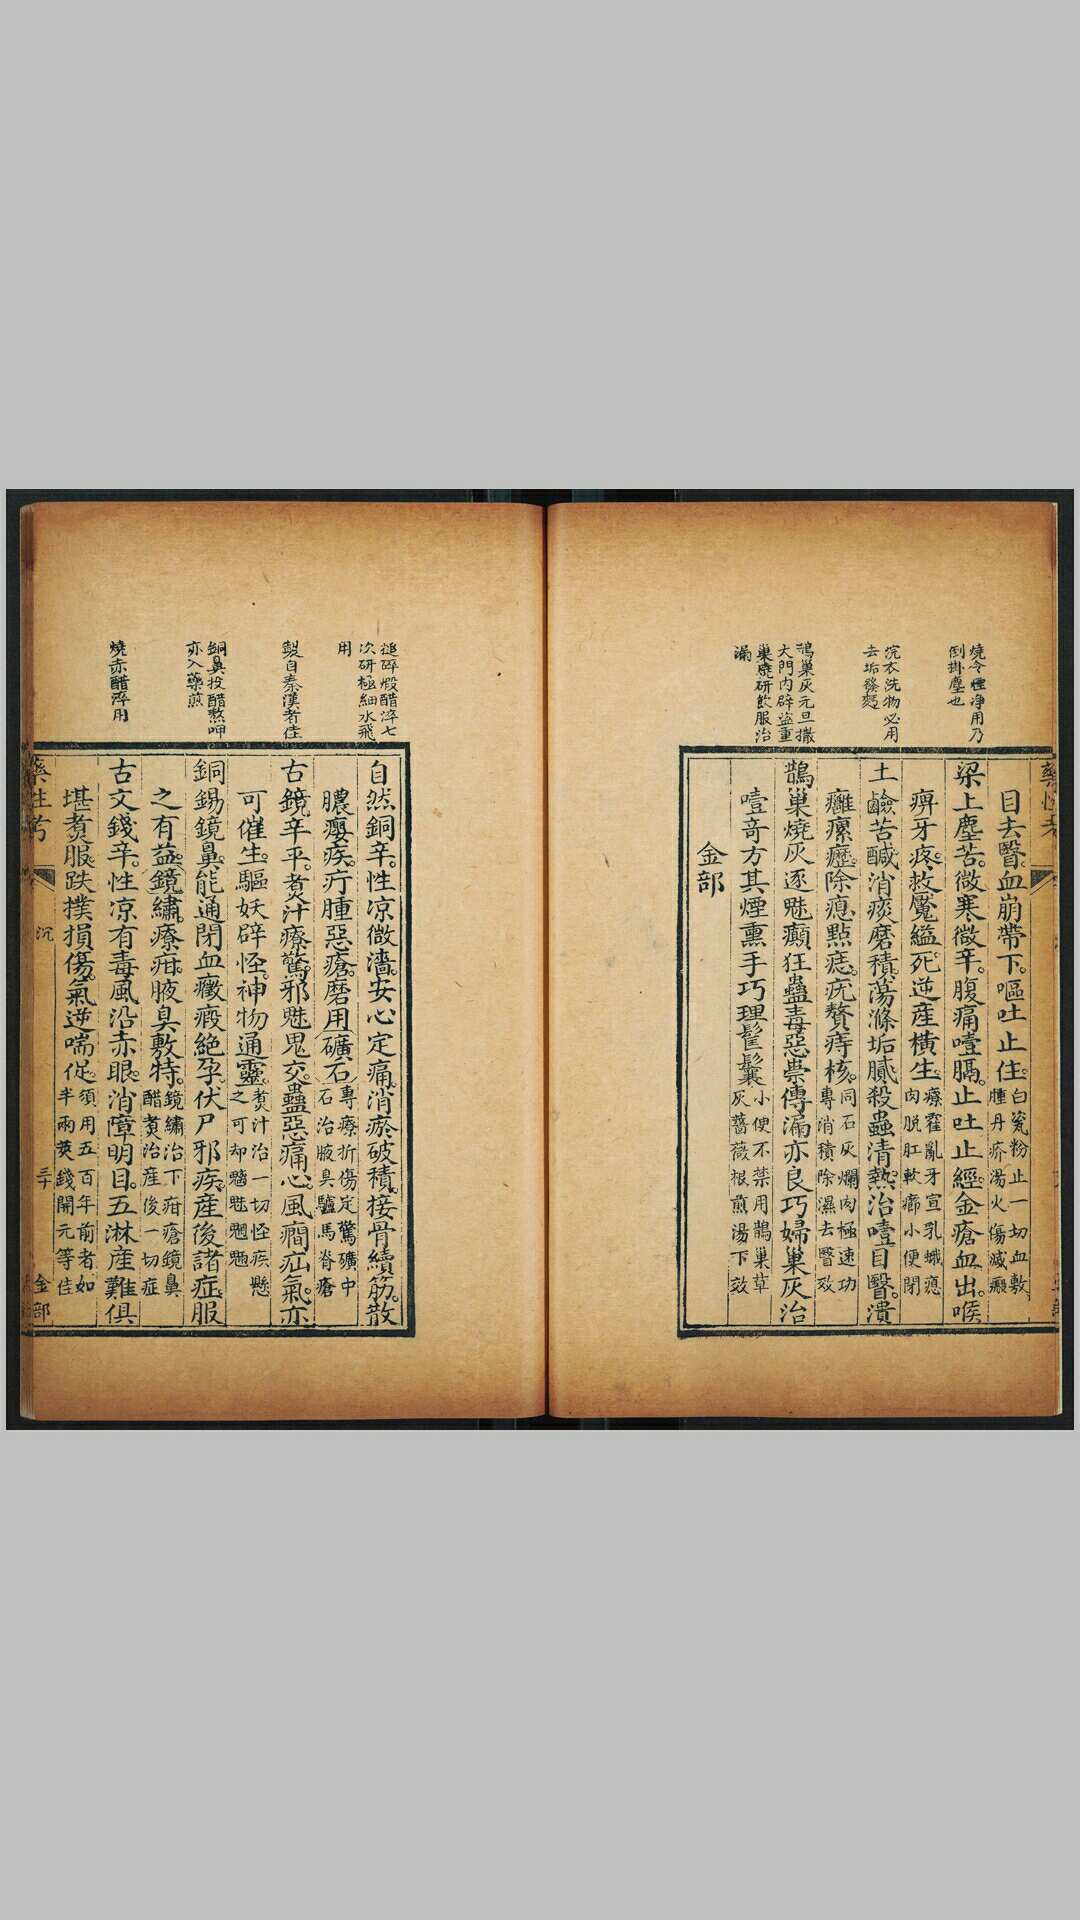 燒令煙淨用乃
倒掛塵也
浣衣洗物必用
去垢發麪
鵲巢灰元旦撒
大門内辟盜重
巢燒研飲服治
漏
目去醫。血崩帶下。嘔吐止住。白瓷粉止一切血敷
腫丹疥湯火傷滅瘢
梁上塵苦。微寒微辛。腹痛噎膈。止吐止經金瘡血出。喉
痹牙疼。救魘縊死。逆產橫生。療霍亂牙宣乳蛾瘜
肉脱肛軟癤小便閉
土鹼苦鹹。消痰磨積。蕩滌垢膩。殺蟲清熱。治噎目醫。潰
癰瘰癧。除瘜點痣。疣贅痔核。同石灰爛肉極速功
專消積除濕去醫效
鵲巢燒灰。逐魅癲狂。蠱毒惡祟。傳漏亦良。巧婦巢灰治
噎奇方。其煙熏手。巧理髦鬟小便不禁用鵲巢草
灰薔薇根煎湯下效
金部
搥碎煅醋淬七
次研極細水飛
用
製自秦漢者佳
銅鼻投醋熬呷
亦入藥煎
燒赤醋淬用
自然銅辛。性凉微濇。安心定痛。消瘀破積。接骨續筋。散
膿癭疾。疔腫惡瘡。磨用礦石專療折傷定驚礦中
石治腋臭驢馬脊瘡
古鏡辛平。煑汁療驚。邪魅鬼交。蠱惡痛心。風癇疝氣。亦
可催生。驅妖辟怪。神物通靈。煑汁治一切怪疾懸
之可却魑魅魍魎
銅錫鏡鼻。能通閉血。癥瘕絶孕。伏尸邪疾。産後諸症。服
之有益。鏡繡。療疳。腋臭敷特。鏡繡治下疳瘡鏡鼻
醋煑治産後一切症
古文錢辛。性凉有毒。風沿赤眼。消障明目。五淋産難。俱
堪煑服。跌撲損傷。氣逆喘促。須用五百年前者如
半兩莢錢開元等佳
藥性考
三十
金部